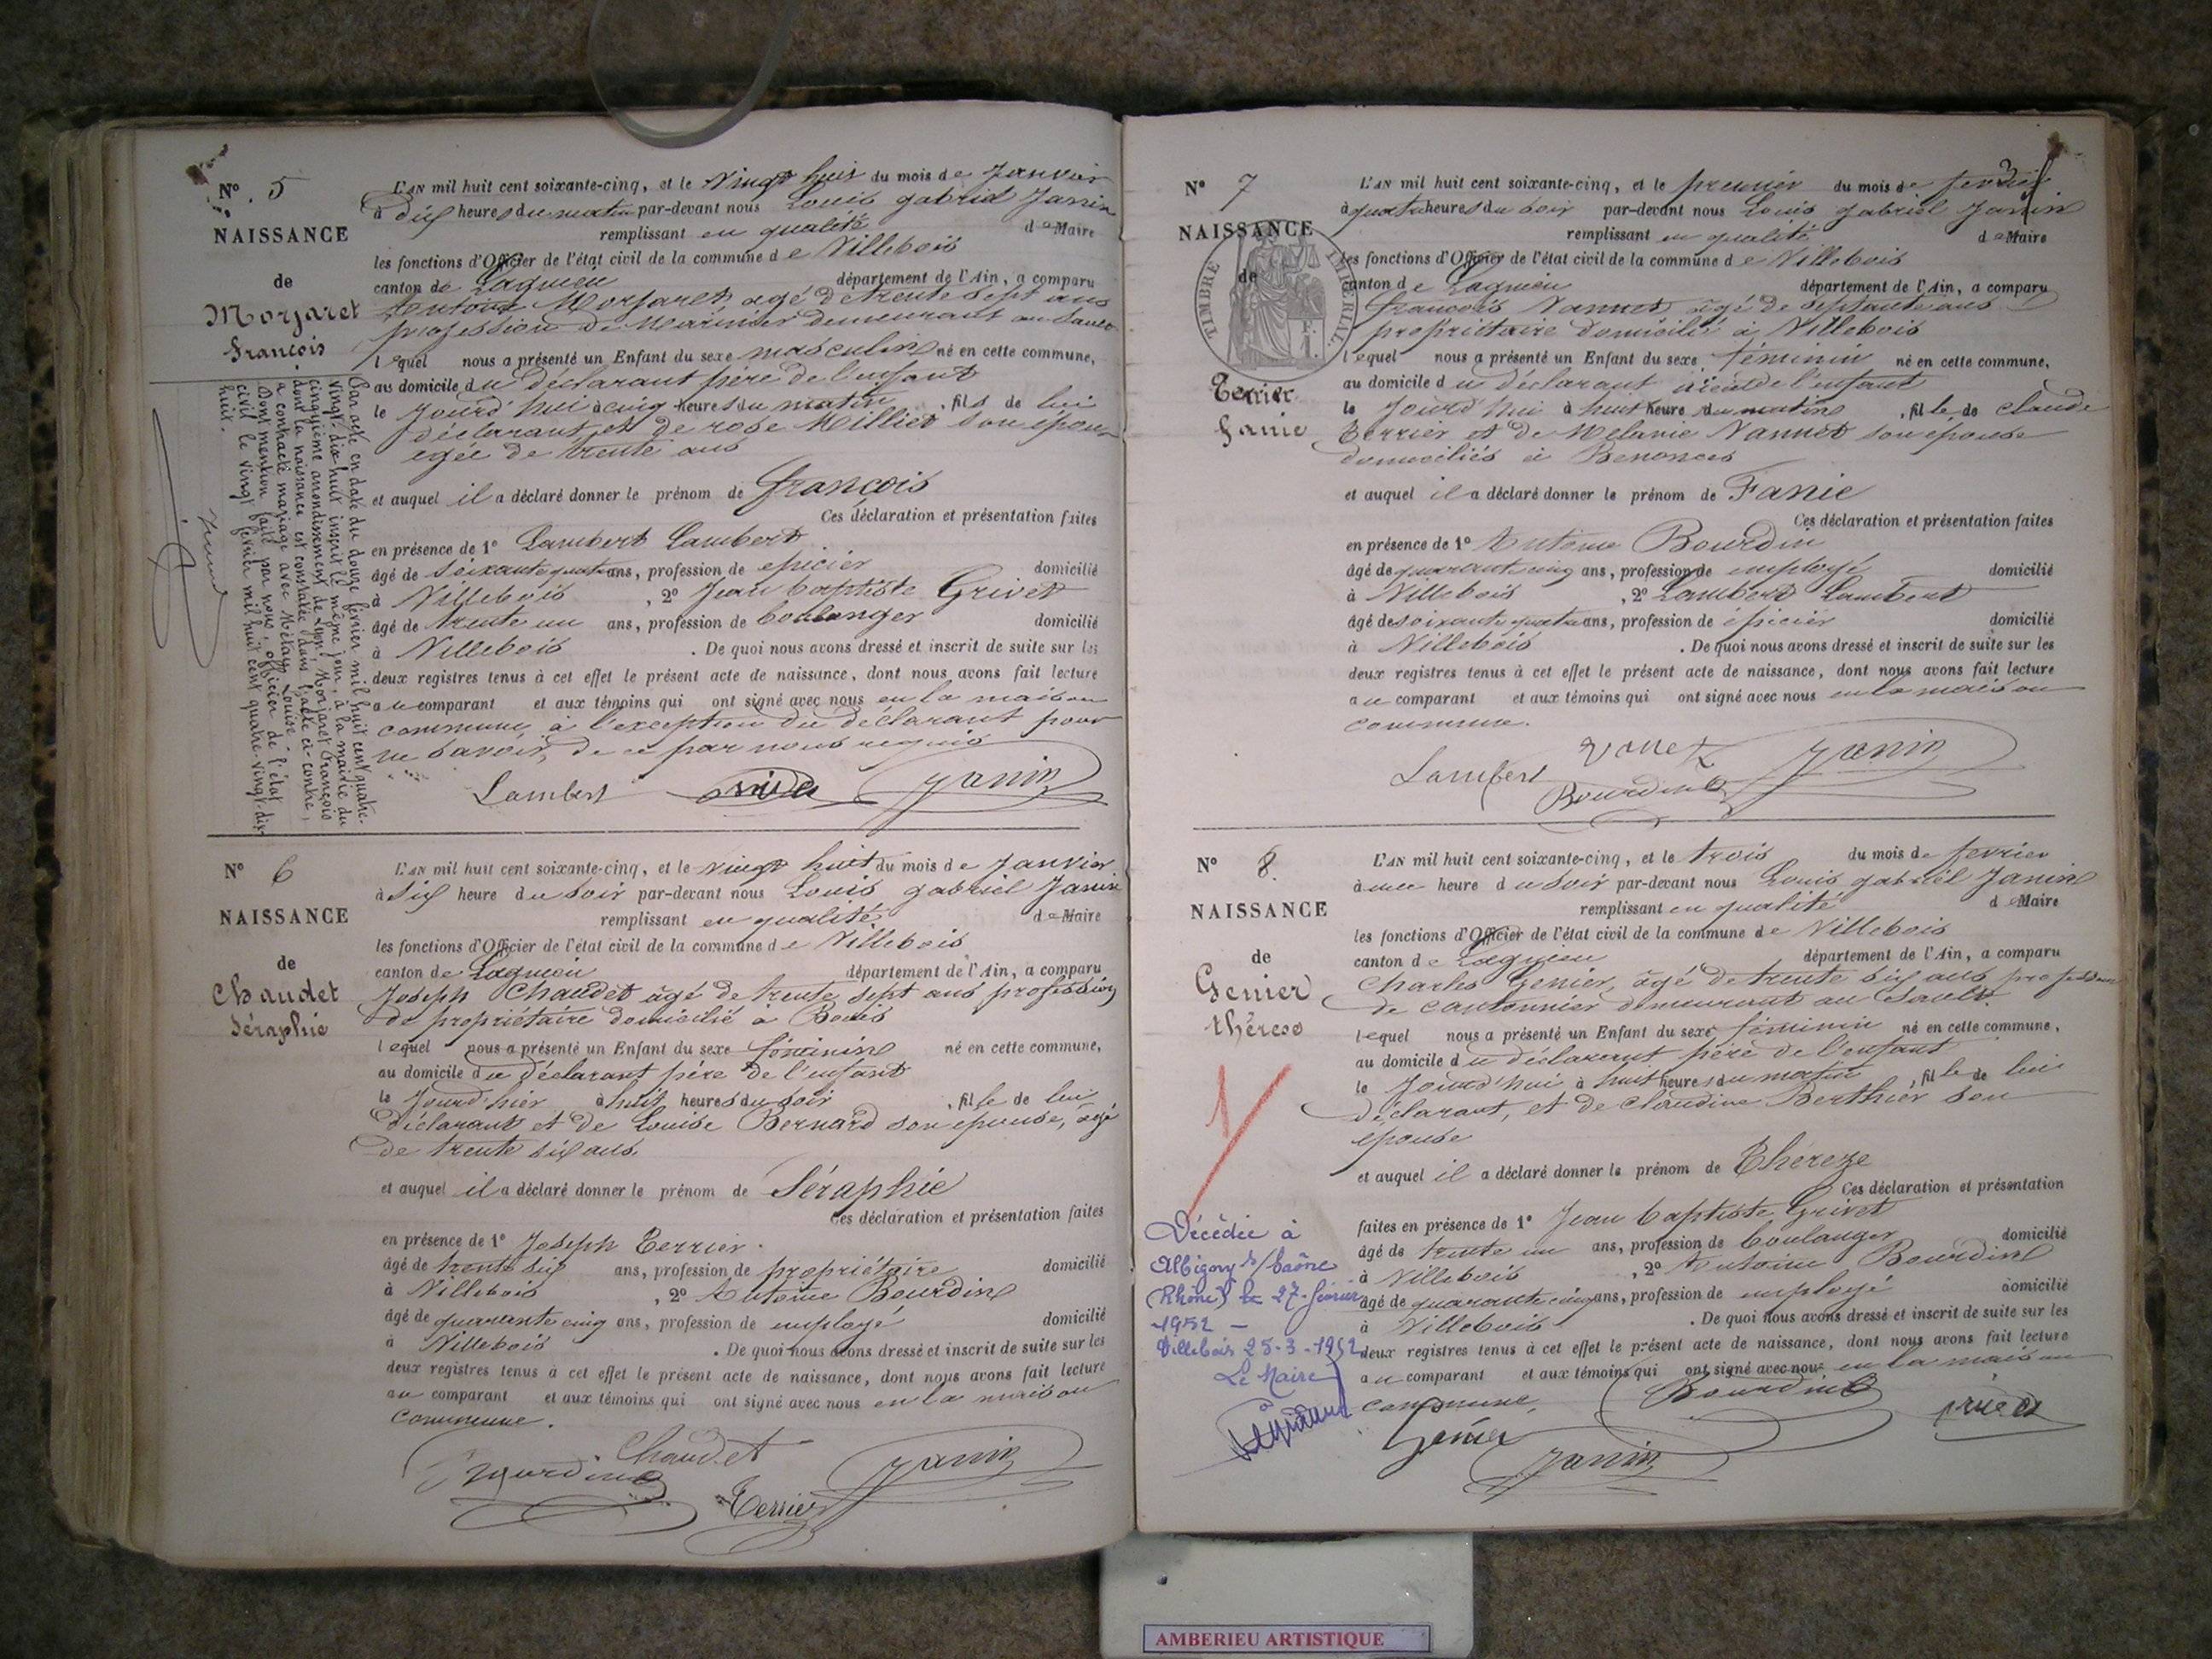 N° 5
NAISSANCE
de
Morjaret
François
L'AN mil huit cent soixante-cinq, et le vingt huit du mois de Janvier
à dix heures du matin par-devant nous Louis gabriel Janin
remplissant en qualité de Maire
les fonctions d'Officier de l'état civil de la commune de Villebois
canton de Lagnieu département de l'Ain, a comparu
Antoine Morjaret, agé de trente sept ans
profession de Marinier demeurant au Sault
lequel nous a présenté un Enfant du sexe masculin né en cette commune,
au domicile du déclarant père de l'enfant
le Jourd'hui à cinq heures du matin, fils de lui
déclarant et de rose Milliet son épouse
agée de trente ans
et auquel il a déclaré donner le prénom de François
Ces déclaration et présentation faites
en présence de 1° Lambert Lambert
âgé de soixante quatre ans, profession de épicier domicilié
à Villebois, 2° Jean baptiste Grivet
âgé de trente un ans, profession de boulanger domicilié
à Villebois. De quoi nous avons dressé et inscrit de suite sur les
deux registres tenus à cet effet le présent acte de naissance, dont nous avons fait lecture
au comparant et aux témoins qui ont signé avec nous en la maison
commune, à l'exception du déclarant pour
ne savoir, de ce par nous requis
Lambert Janin
Par acte en date du douze février mil huit cent quatre-
vingt-dix-huit inscrit le même jour, à la mairie du
cinquième arrondissement de Lyon, Morjaret François
dont la naissance est constatée dans l'acte ci-contre,
a contracté mariage avec Métay Louise.
Dont mention faite par nous, officier de l'état
civil le vingt février mil huit cent quatre-vingt-dix-
huit.
N° 6
NAISSANCE
de
Chaudet
Séraphie
L'AN mil huit cent soixante-cinq, et le vingt huit du mois de Janvier
à six heure du soir par-devant nous Louis gabriel Janin
remplissant en qualité de Maire
les fonctions d'Officier de l'état civil de la commune de Villebois
canton de Lagnieu département de l'Ain, a comparu
Joseph Chaudet âgé de trente sept ans profession
de propriétaire domicilié à Bouis
lequel nous a présenté un Enfant du sexe féminin né en cette commune,
au domicile du déclarant père de l'enfant
le Jourd'hier à huit heures du soir, fille de lui
déclarant et de Louise Bernard son épouse, agé
de trente six ans.
et auquel il a déclaré donner le prénom de Séraphie
Ces déclaration et présentation faites
en présence de 1° Joseph Terrier.
âgé de trente six ans, profession de propriétaire domicilié
à Villebois, 2° Antoine Bourdin
âgé de quarante cinq ans, profession de employé domicilié
à Villebois. De quoi nous avons dressé et inscrit de suite sur les
deux registres tenus à cet effet le présent acte de naissance, dont nous avons fait lecture
au comparant et aux témoins qui ont signé avec nous en la maison
commune.
Chaudet Janin
Bourdin Terrier
N° 7
NAISSANCE
de
TIMBRE IMPÉRIAL.
Terrier
Fanie
L'AN mil huit cent soixante-cinq, et le premier du mois de fevrier
à quatre heures du soir par-devant nous Louis gabriel Janin
remplissant en qualité de Maire
les fonctions d'Officier de l'état civil de la commune de Villebois
canton de Lagnieu département de l'Ain, a comparu
françois Vannet, âgé de septante ans
propriétaire domicilié à Villebois
lequel nous a présenté un Enfant du sexe féminin né en cette commune,
au domicile du déclarant aïeul de l'enfant
le Jourd'hui à huit heure du matin, fille de claude
Terrier et de Melanie Vannet son épouse
domiciliés à Benonces
et auquel il a déclaré donner le prénom de Fanie
Ces déclaration et présentation faites
en présence de 1° Antoine Bourdin
âgé de quarante cinq ans, profession de employé domicilié
à Villebois, 2° Lambert Lambert
âgé de soixante quatre ans, profession de épicier domicilié
à Villebois. De quoi nous avons dressé et inscrit de suite sur les
deux registres tenus à cet effet le présent acte de naissance, dont nous avons fait lecture
au comparant et aux témoins qui ont signé avec nous en la maison
commune.
Lambert Janin
Bourdin
N° 8.
NAISSANCE
de
Genier
thérese
L'AN mil huit cent soixante-cinq, et le trois du mois de fevrier
à une heure du soir par-devant nous Louis gabriel Janin
remplissant en qualité de Maire
les fonctions d'Officier de l'état civil de la commune de Villebois
canton de Lagnieu département de l'Ain, a comparu
Charles Genier, âgé de trente six ans profession
de cantonnier demeurant au Sault.
lequel nous a présenté un Enfant du sexe féminin né en cette commune,
au domicile du déclarant père de l'enfant
le Jourd'hui à huit heures du matin, fille de lui
déclarant, et de Claudine Berthier son
épouse
et auquel il a déclaré donner le prénom de Théreze
Ces déclaration et présentation
faites en présence de 1° Jean baptiste Grivet
âgé de trente un ans, profession de boulanger domicilié
à Villebois, 2° Antoine Bourdin
âgé de quarante cinq ans, profession de employé domicilié
à Villebois. De quoi nous avons dressé et inscrit de suite sur les
deux registres tenus à cet effet le présent acte de naissance, dont nous avons fait lecture
au comparant et aux témoins qui ont signé avec nous en la maison
commune.
Bourdin
Génier
Janin
Décédée à
Albigny s/Saône
(Rhône) le 27 février
1952 -
Villebois 25-3-1952
Le Maire
AMBERIEU ARTISTIQUE